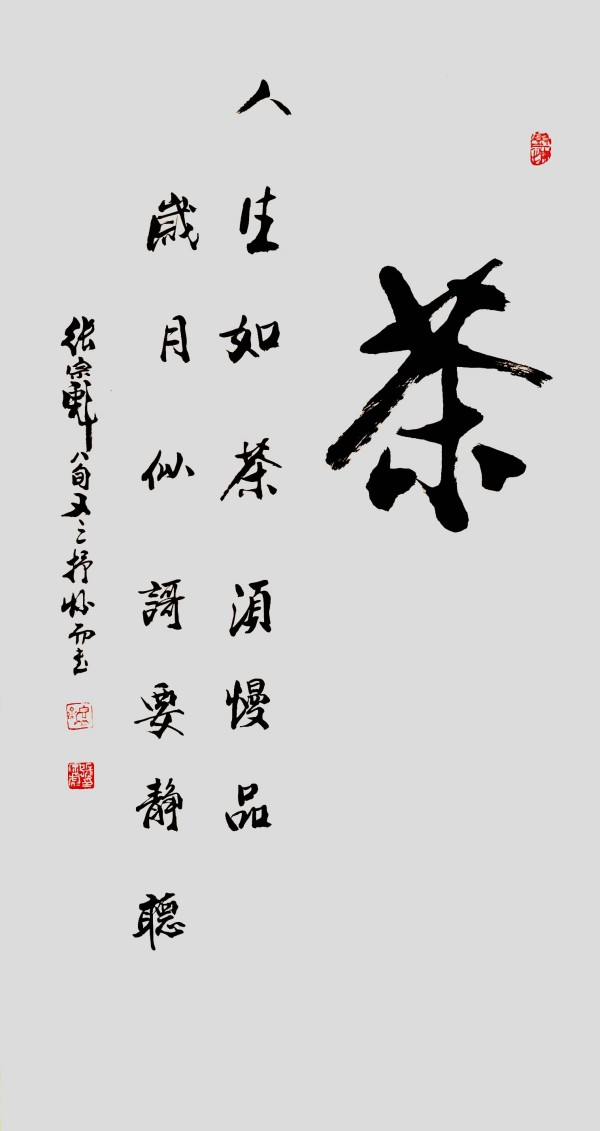 茶
人生如茶須慢品
歲月似謌要静聽
張宗彪八旬又三抒怀而书